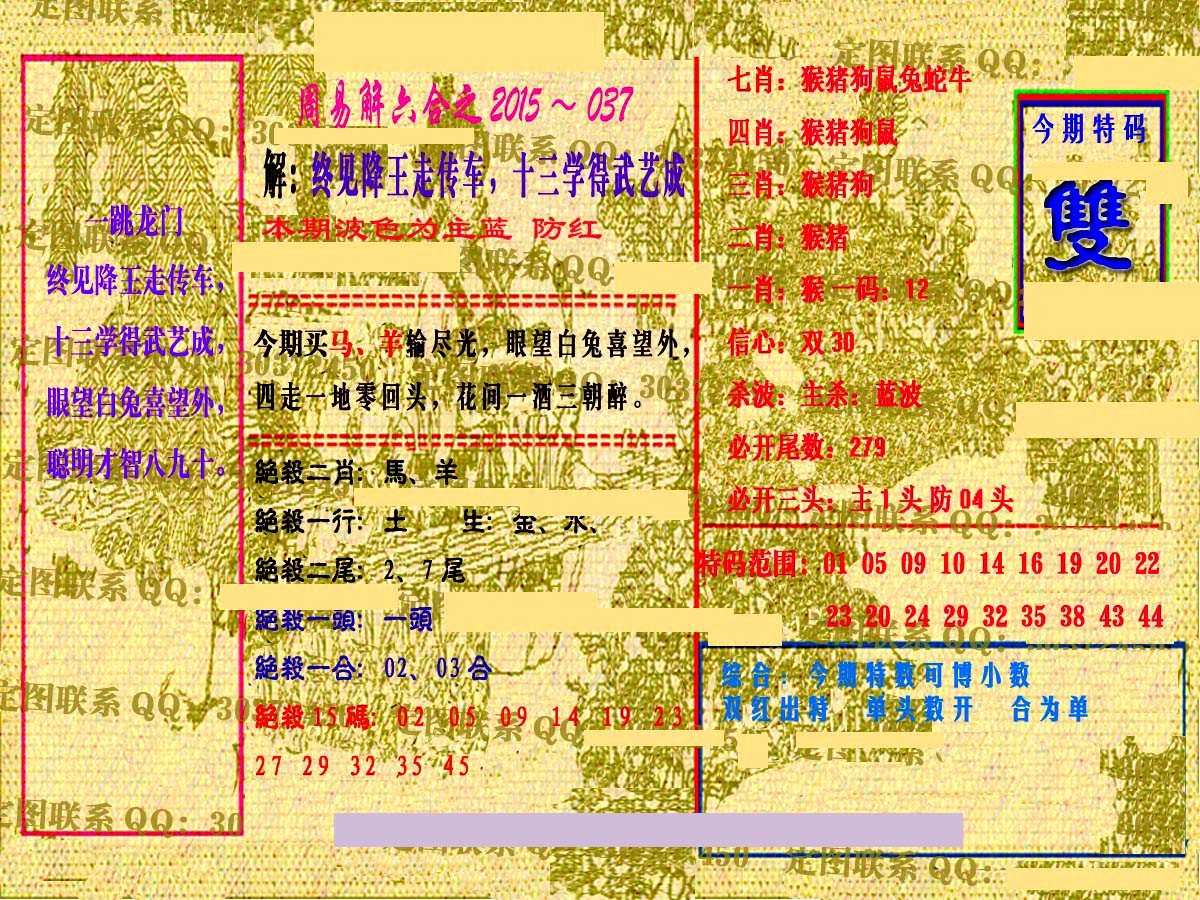 周易解六合之 2015～037
解：终见降王走传车，十三学得武艺成
本期波色为主蓝 防红
一跳龙门
终见降王走传车，
十三学得武艺成，
眼望白兔喜望外，
聪明才智八九十。
今期买马、羊输尽光，眼望白兔喜望外，
四走一地零回头，花间一酒三朝醉。
絕殺二肖：馬、羊
絕殺一行：土 生：金、水、
絕殺二尾：2、7尾
絕殺一頭：一頭
絕殺一合：02、03合
絕殺15碼：02 05 09 14 19 23
27 29 32 35 45
七肖：猴猪狗鼠兔蛇牛
四肖：猴猪狗鼠
三肖：猴猪狗
二肖：猴猪
一肖：猴 一码：12
信心：双30
杀波：主杀：蓝波
必开尾数：279
必开三头：主1头防04头
今期特码
雙
特码范围：01 05 09 10 14 16 19 20 22
23 20 24 29 32 35 38 43 44
综合：今期特数可博小数
双红出特 单头数开 合为单
定图联系QQ：